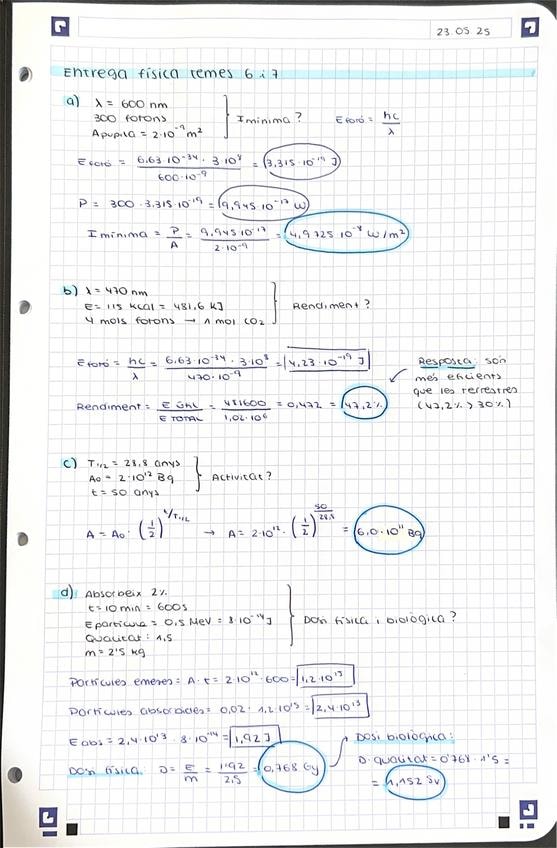 23.05 25
Entrega física temes 6 i 7
a) λ = 600 nm
300 fotons
Apupila = 2·10⁻⁹ m²
Imínima ?
Efotó = hc/λ
Efotó = 6,63·10⁻³⁴ · 3·10⁸ / 600·10⁻⁹ = 3,315·10⁻¹⁹ J
P = 300 · 3,315·10⁻¹⁹ = 9,945·10⁻¹⁷ W
Imínima = P/A = 9,945·10⁻¹⁷ / 2·10⁻⁹ = 4,9725·10⁻⁸ W/m²
b) λ = 470 nm
E = 115 kcal = 481,6 kJ
4 mols fotons → 1 mol CO₂
Rendiment ?
Efotó = hc/λ = 6,63·10⁻³⁴ · 3·10⁸ / 470·10⁻⁹ = 4,23·10⁻¹⁹ J
Rendiment = E ÚTIL / E TOTAL = 481600 / 1,02·10⁶ = 0,472 = 47,2%
Resposta: són
més eficients
que les terrestres
(47,2% > 30%)
c) T₁/₂ = 28,8 anys
A₀ = 2·10¹² Bq
t = 50 anys
Activitat ?
A = A₀ · (1/2)^t/T₁/₂ → A = 2·10¹² · (1/2)^50/28,8 = 6,0·10¹¹ Bq
d) Absorbeix 2%
t = 10 min = 600s
Epartícula = 0,5 MeV = 8·10⁻¹⁴ J
Qualitat: 1,5
m = 2'5 kg
Dosi física i biològica ?
Partícules emeses = A·t = 2·10¹² · 600 = 1,2·10¹⁵
Partícules absorbides = 0,02 · 1,2·10¹⁵ = 2,4·10¹³
Eabs = 2,4·10¹³ · 8·10⁻¹⁴ = 1,92 J
Dosi física: D = E/m = 1'92/2,5 = 0,768 Gy
Dosi biològica:
D·qualitat = 0'768·1'5 =
= 1,152 Sv